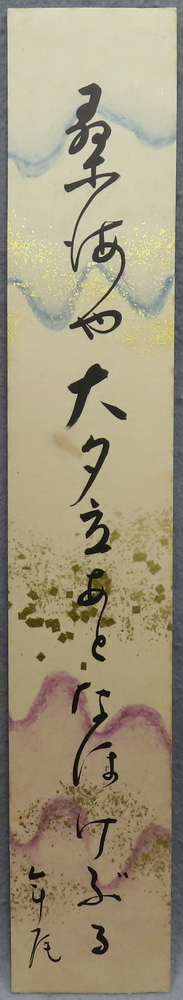 桑海や大夕立あとなほけぶる
年尾